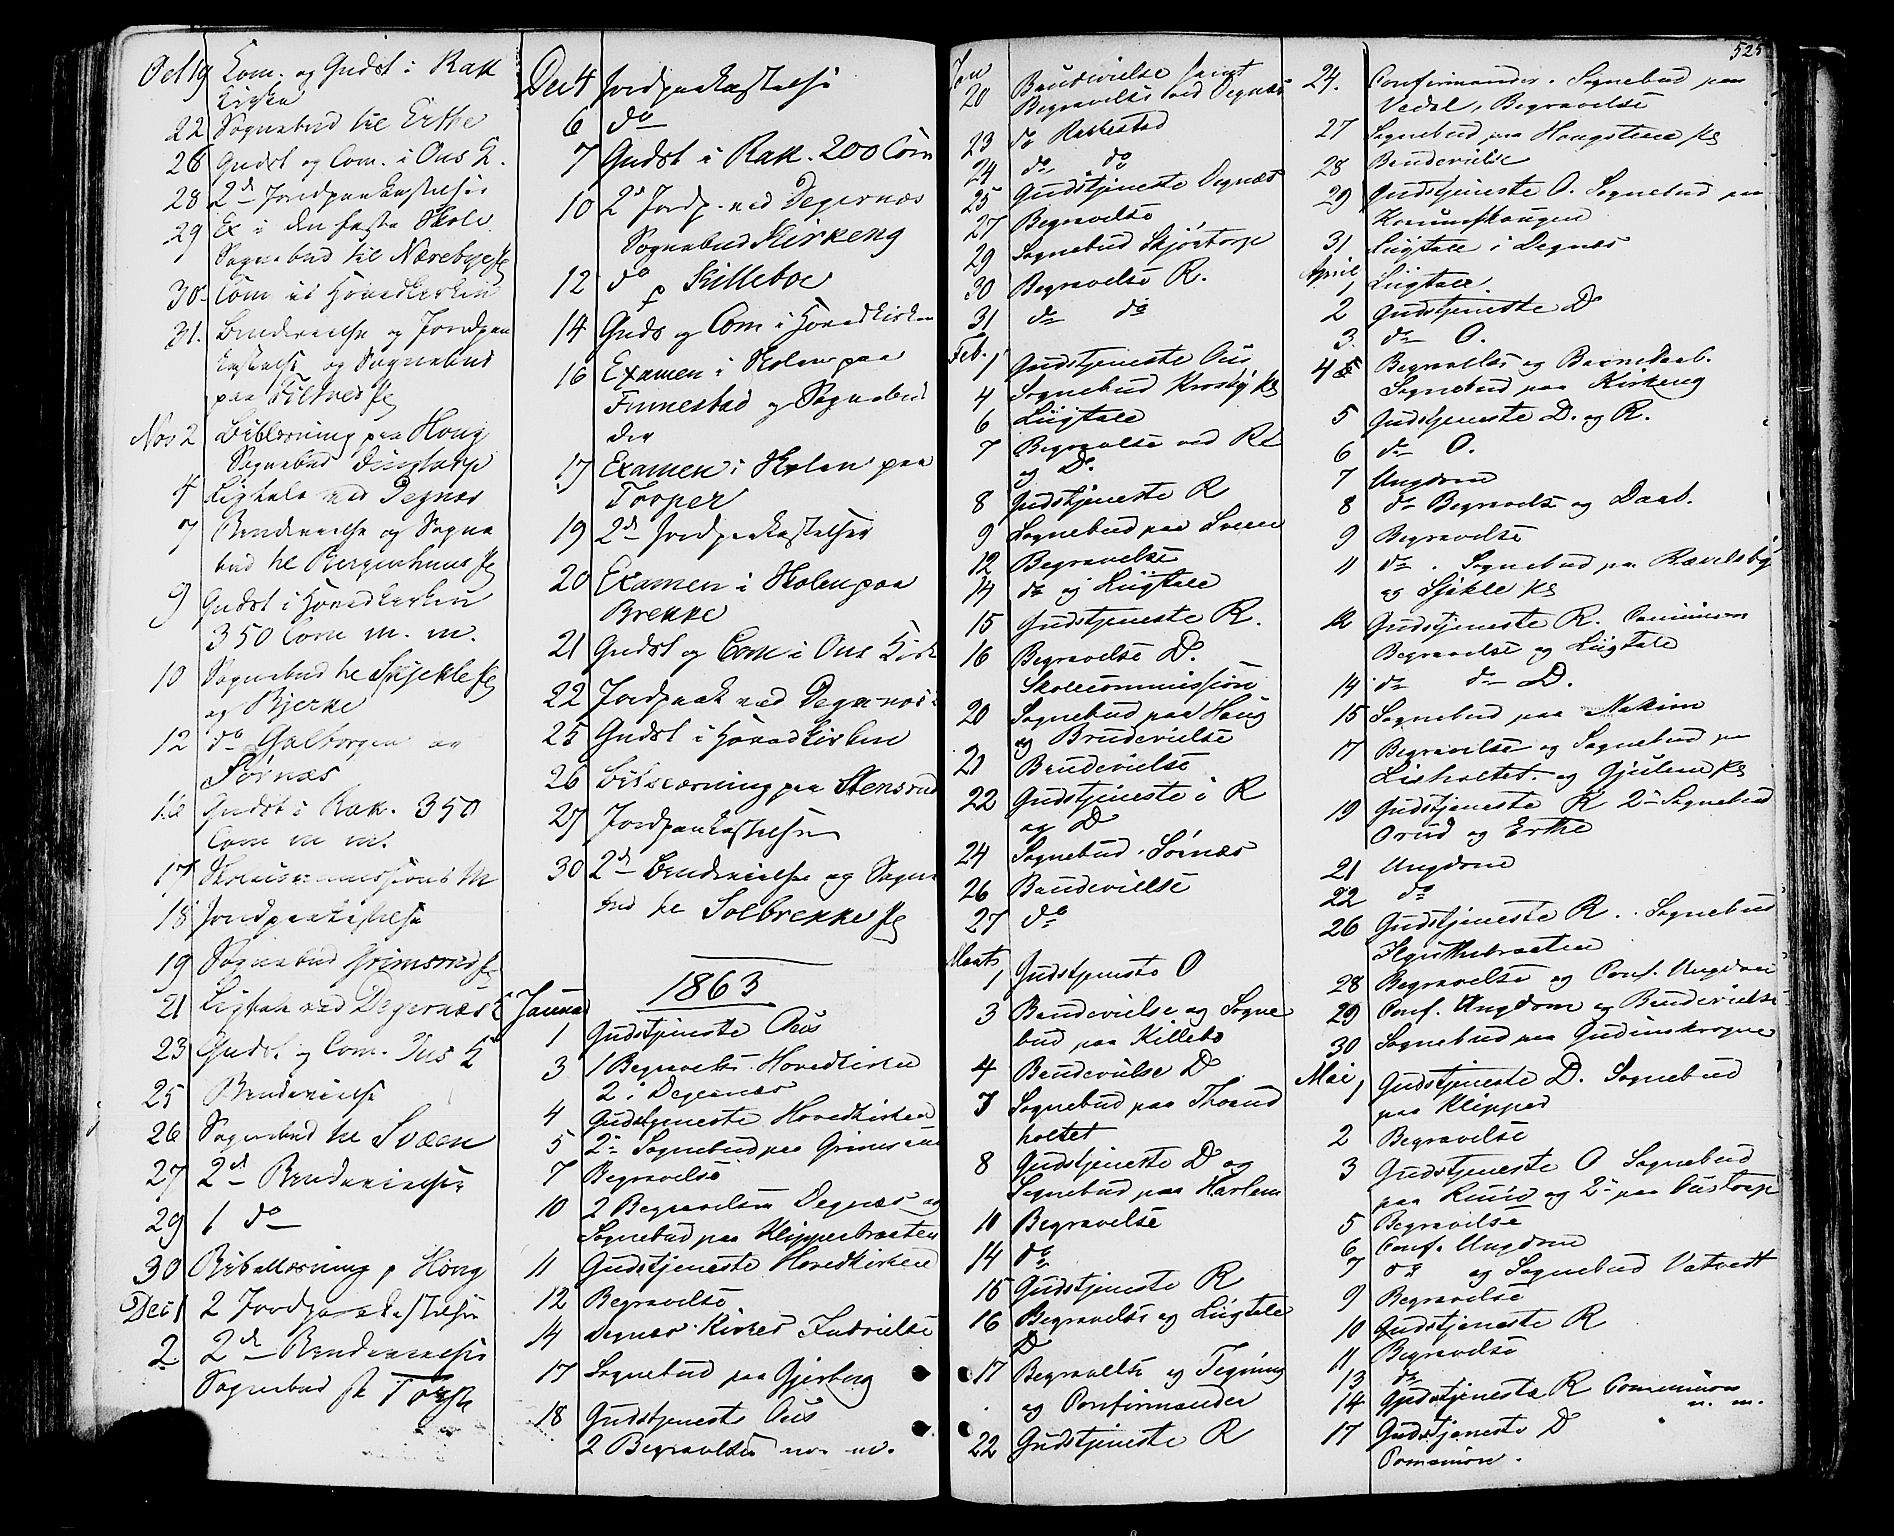 Oct 19 Com. og Gudst i Rak
Kirke
22 Sognebud til Erthe
26 Gudst og Com. i Ous K.
28 2de Jordpaakastelser
29 Ex i den faste Skole
Sognebud til Nærebye
30 Com i Hovedkirken
31. Brudevielse og Jordpaa
kastelse og Sognebud
paa
Nov 2 Bibllæsning paa Houg
Sognebud
4 Ligtale ved Degnæs
7 Brudevielse og Sogne
bud til Bergenhuus
9 Gudst i Hovedkirken
350 Com m. m.
10 Sognebud til Skjekle
og Bjerke
12 do og
Sørnæs
16 Gudst i Rak. 350
Com m m.
17 Skolecommissions M
18 Jordpaakastelse
19 Sognebud Grimsrud
21 Ligtale ved Degernæs K
23 Gudst og Com. Ous K
25 Brudevielse
26 Sognebud til Svæen
27 2de Brudevielser
29 1 do
30 Bibellæsning p Houg
Dec 1 2 Jordpaakastelser
2 2de Brudevielser
Sognebud
Dec 4 Jordpaakastelse
6 do
7 Gudst i Rak. 200 Com
10 2de Jordp. ved Degernæs
Sognebud Kirkeng
12 do p Killeboe
14 Guds og Com i Hovedkirken
16 Examen i Skolen paa
Finnestad og Sognebud
der
17 Examen i Skolen paa
Torper
19 2de Jordpaakastelser
20 Examen i Skolen paa
Brekke
21 Gudst og Com i Ous Kirk
22 Jordpaak ved Degernæs
25 Gudst i Hovedkirken
26 Biblæsning paa Stensrud
27 Jordpaakastelse
30 2de Brudevielse og Sogne
bud til Solbrekke
1863
Januar
1 Gudstjeneste Ous
3 1 Begravelse Hovedkirken
2 i Degernæs
4 Gudstjeneste Hovedkirken
5 2de Sognebud paa Grimsrud
7 Begravelse
10 2 Begravelser Degnæs og
Sognebud paa Klipperbraaten
11 Gudstjeneste Hovedkirken
12 Begravelse
14 Degnæs Kirkes Indvielse
17 Sognebud paa Gjerberg
18 Gudstjeneste Ous
2 Begravelser m. m.
Jan
20 Brudevielse samt
Begravelse ved Degnæs
23 do Rakkestad
24 do do
25 Gudstjeneste Degnæs
27 Begravelse
29 Sognebud Skjøntorp
30 Begravelse R.
31 do do
Feb. 1 Gudstjeneste Ous
4 Sognebud Krosby
6 Liigtale
7 Begravelse ved R
og D.
8 Gudstjeneste R
9 Sognebud paa Sveen
12 Begravelse
14 do og Liigtale
15 Gudstjeneste R.
16 Begravelse D.
Skolecommission
20 Sognebud paa Houg
og Brudevielse
21 Brudevielse
22 Gudstjeneste i R
og D
24 Sognebud. Sørnæs
26 Brudevielse
27 do
Marts
1 Gudstjeneste O
3 Brudevielse og Sogne
bud paa Killebo
4 Brudevielse D
7 Sognebud paa Thorud
holtet
8 Gudstjeneste D og
Sognebud paa Harlem
10 Begravelse
14 do
15 Gudstjeneste R
16 Begravelse og Liigtale
D
17 Begravelse og Tegning
og Confirmander
22 Gudstjeneste R
525
24. Confirmander. Sognebud paa
Vedal, Begravelse
27 Sognebud paa Haugsteen
28 Brudevielse
29 Gudstjeneste O. Sognebud paa
31 Liigtale i Degnæs
April
1 Liigtale.
2 Gudstjeneste D
3. do O.
4 Begravelse og Barnedaab.
Sognebud paa Kirkeng
5 Gudstjeneste D. og R.
6 do O.
7 Ungdom
8 do Begravelse og Daab.
9 Begravelse
11 do. Sognebud paa Rævelsby
og Skjekle
12 Gudstjeneste R. Comunion
Begravelse og Liigtale
14 do do D.
15 Sognebud paa Nakim
17 Begravelse og Sognebud paa
Lisholtet og Gjulem
19 Gudstjeneste R 2de Sognebud
Orud og Erthe
21 Ungdom
22 do
26 Gudstjeneste R. Sognebud
28 Begravelse og Conf. Ungdom
29 Conf. Ungdom og Brudevielse
30 Sognebud paa Gudimskrogene
Mai 1 Gudstjeneste D. Sognebud
paa Klipper
2 Begravelse
3 Gudstjeneste O Sognebud
paa Kinid og 2de paa Oustorp
5 Begravelse
6 Conf. Ungdom
7 do og Sognebud Vatvedt
9 Begravelse
10 Gudstjeneste R
11 Begravelse
13 do
14 Gudstjeneste R Comunion
m. m.
17 Gudstjeneste D
Comunion.